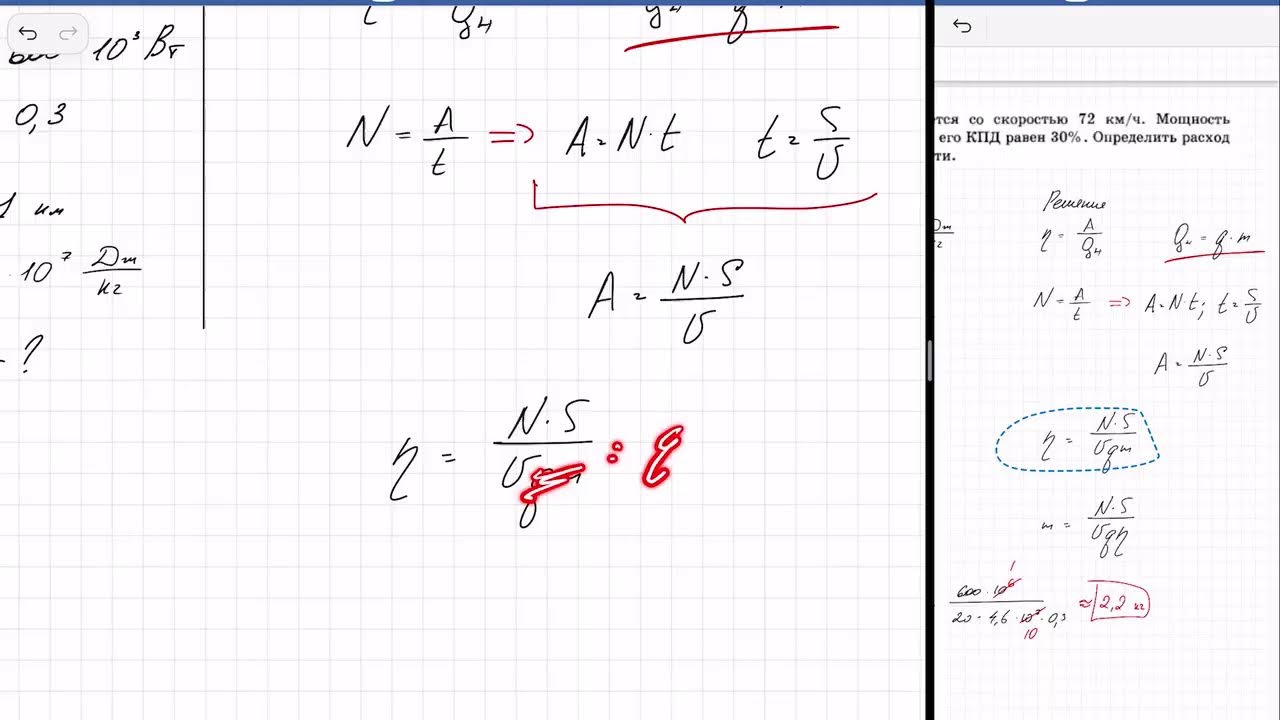 10³ Вт
0,3
1 км
· 10⁷ Дж/кг
- ?
Qн
N = A/t => A = N·t t = S/υ
A = N·S/υ
η = N·S/υqm : q
тся со скоростью 72 км/ч. Мощность
его КПД равен 30%. Определить расход
ти.
Решение
η = A/Qн Qн = q·m
N = A/t => A = N·t; t = S/υ
A = N·S/υ
η = N·S/υqm
m = N·S/υqη
1
600·10⁶/20·4,6·10⁷·0,3 ≈ 2,2 кг
10